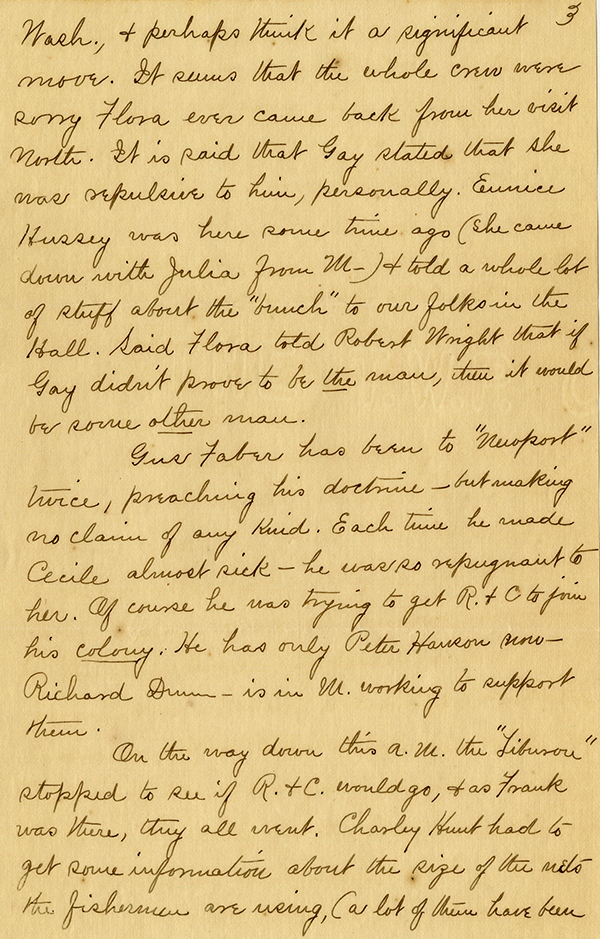 3
Wash., & perhaps think it a significant
move. It seems that the whole crew were
sorry Flora ever came back from her visit
North. It is said that Gay stated that she
was repulsive to him, personally. Eunice
Hussey was here some time ago (she came
down with Julia from M-) & told a whole lot
of stuff about the "bunch" to our folks in the
Hall. Said Flora told Robert Wright that if
Gay didn't prove to be the man, then it would
be some other man.
Gus Faber has been to "Newport"
twice, preaching his doctrine - but making
no claim of any kind. Each time he made
Cecile almost sick - he was so repugnant to
her. Of course he was trying to get R. & C to join
his colony. He has only Peter Hanson now -
Richard Dunn - is in M. working to support
them.
On the way down this a.m. the "Tiburon"
stopped to see if R. & C. would go, & as Frank
was there, they all went. Charley Hunt had to
get some information about the size of the nets
the fishermen are using, (a lot of them have been